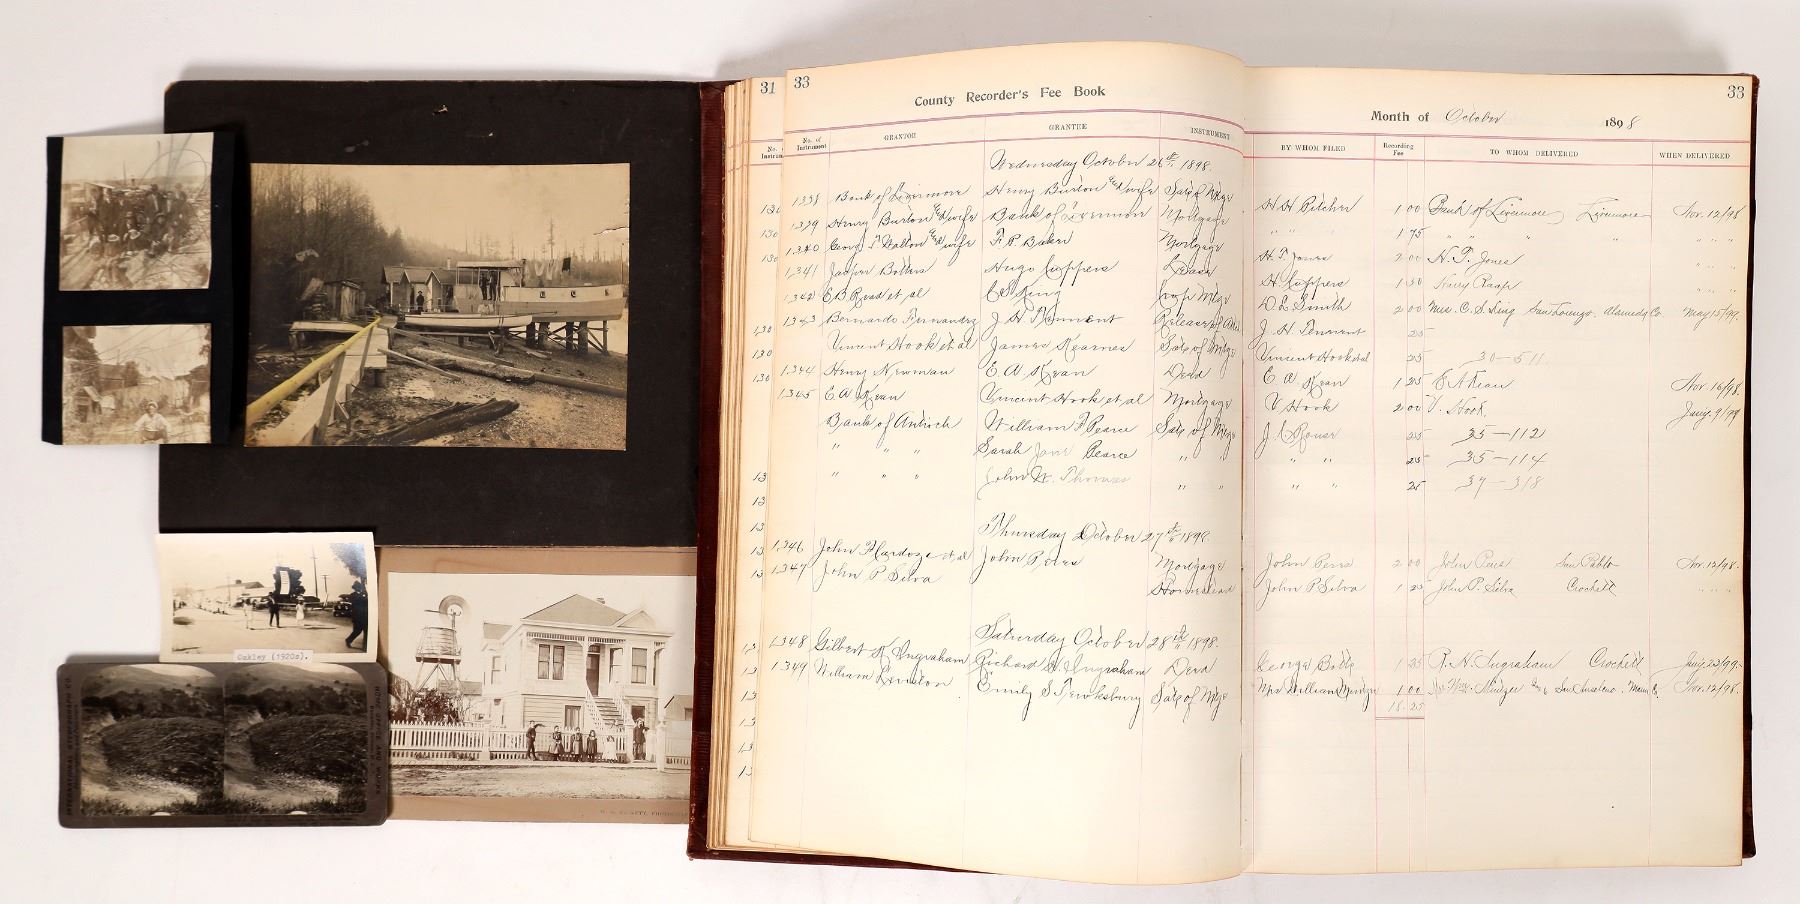 31
33
County Recorder's Fee Book
No. of Instrument GRANTOR GRANTEE INSTRUMENT
Wednesday October 26th 1898.
1338 Bank of Livermore Henry Burton & wife Satis of Mtge
1339 Henry Burton & wife Bank of Livermore Mortgage
1340 Georg F. Walton & wife F. P. Baker Mortgage
1341 Jasper Hugo Coppers Lease
1342 E B Read et al King Crop Mtge
1343 Bernardo Fernandez J. H. Tennent Release of
Vincent Hook et al James Kearnes Satis of Mtge
1344 Henry Newman E. A. Kean Deed
1345 E A Kean Vincent Hook et al Mortgage
Bank of Antioch William F Pearce Satis of Mtge
" " " Sarah Jane Pearce " "
" " " John W. Thomas " "
Thursday October 27th 1898.
1346 John et al John Peres Mortgage
1347 John P Silva Homestead
Saturday October 28th 1898.
1348 Gilbert Ingraham Richard N. Ingraham Deed
1349 William Emily S Tewksbury Satis of Mtge
33
Month of October 1898
BY WHOM FILED Recording Fee TO WHOM DELIVERED WHEN DELIVERED
H H Pitcher 1 00 Bank of Livermore Livermore Nov. 12/98
" " 1 75 " " " " " "
H. F. Jones 2 00 H. F. Jones " " "
H Coppers 1 50 Harry Raap " " "
D. E. Smith 2 00 Mrs. C. S. King San Lorenzo, Alameda Co May 15/99.
J. H. Tennent 25
Vincent Hook et al 25 30-511
E. A. Kean 1 25 E A Kean Nov. 16/98.
V Hook 2 00 V. Hook. Jany. 9/99
25 35-112
" " 25 35-114
" " 25 37-318
John Peres 2 00 John Peres San Pablo Nov. 12/98.
John P Silva 1 25 John P. Silva Crockett " " "
George 1 25 R. N. Ingraham Crockett Jany. 23/99.
Mrs William 1 00 San Anselmo, Marin Co. Nov. 12/98.
18.25
Oakley (1920s).